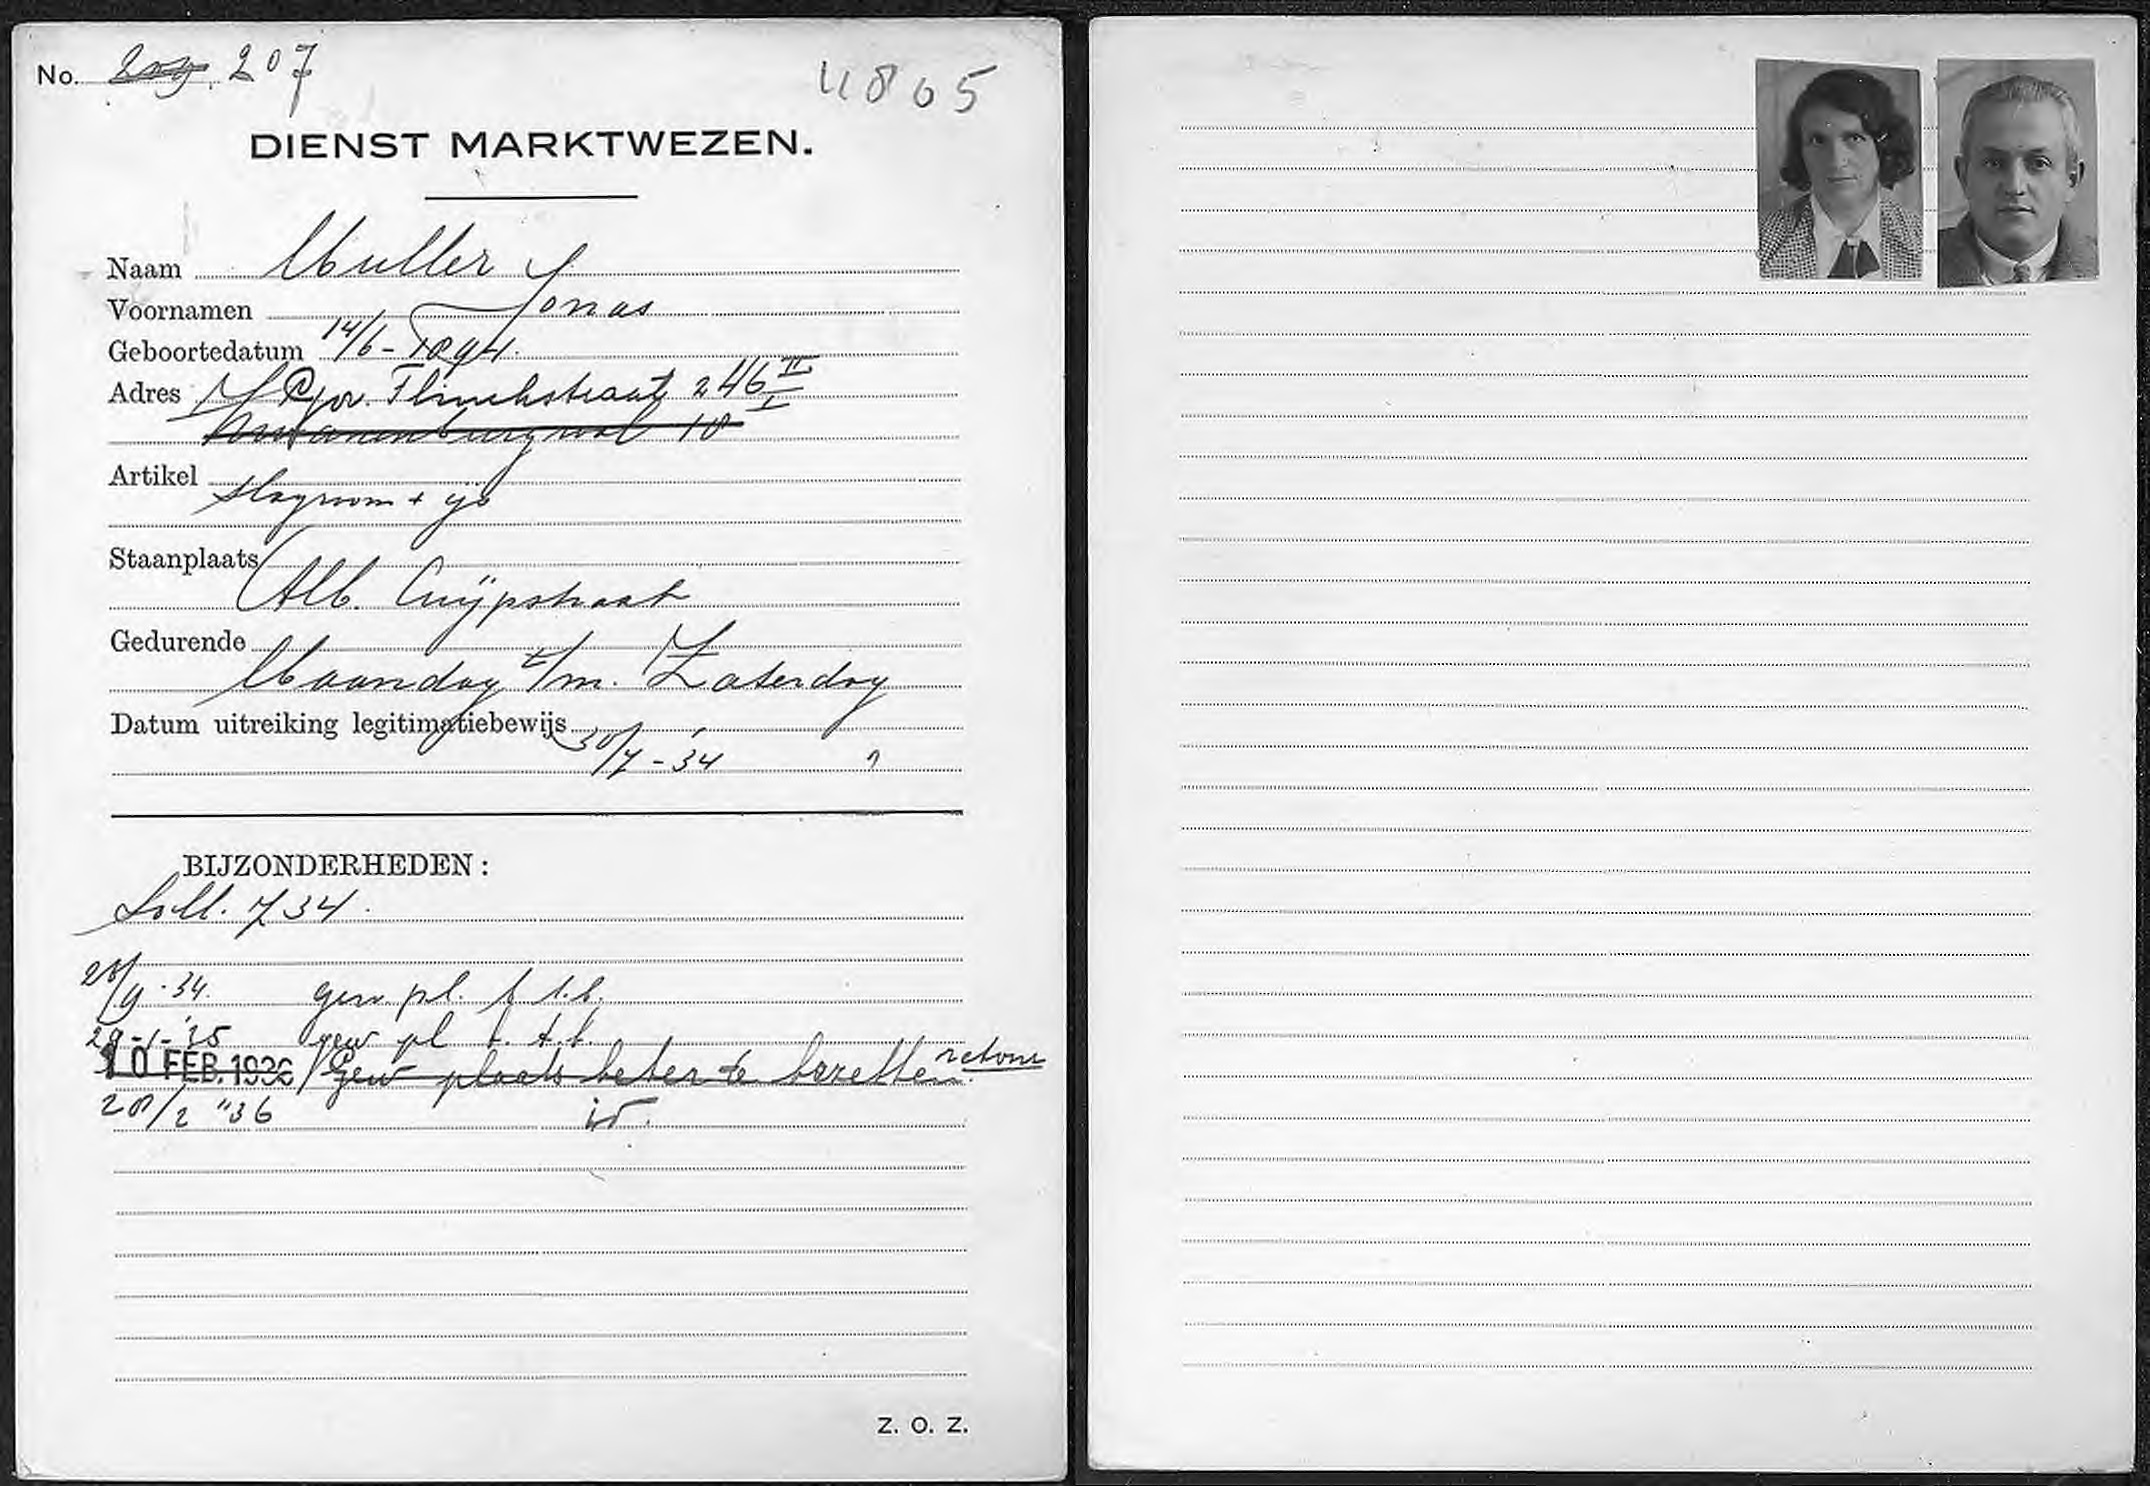 No. 207
4865
DIENST MARKTWEZEN.
Naam Muller
Voornamen Jonas
Geboortedatum 14/6-1894.
Adres Gov. Flinckstraat 246 II
Zwanenburgwal 18 I
Artikel
Slagroom + ijs
Staanplaats
Alb. Cuijpstraat
Gedurende
Maandag t/m. Zaterdag
Datum uitreiking legitimatiebewijs
30/7-34
BIJZONDERHEDEN:
Soll. 734.
28/9-34. gew pl. t.
29-1-'35 gew pl t.
10 FEB. 1936 Gew plaats beter te bezetten. retour
20/2 "36 id.
Z. O. Z.